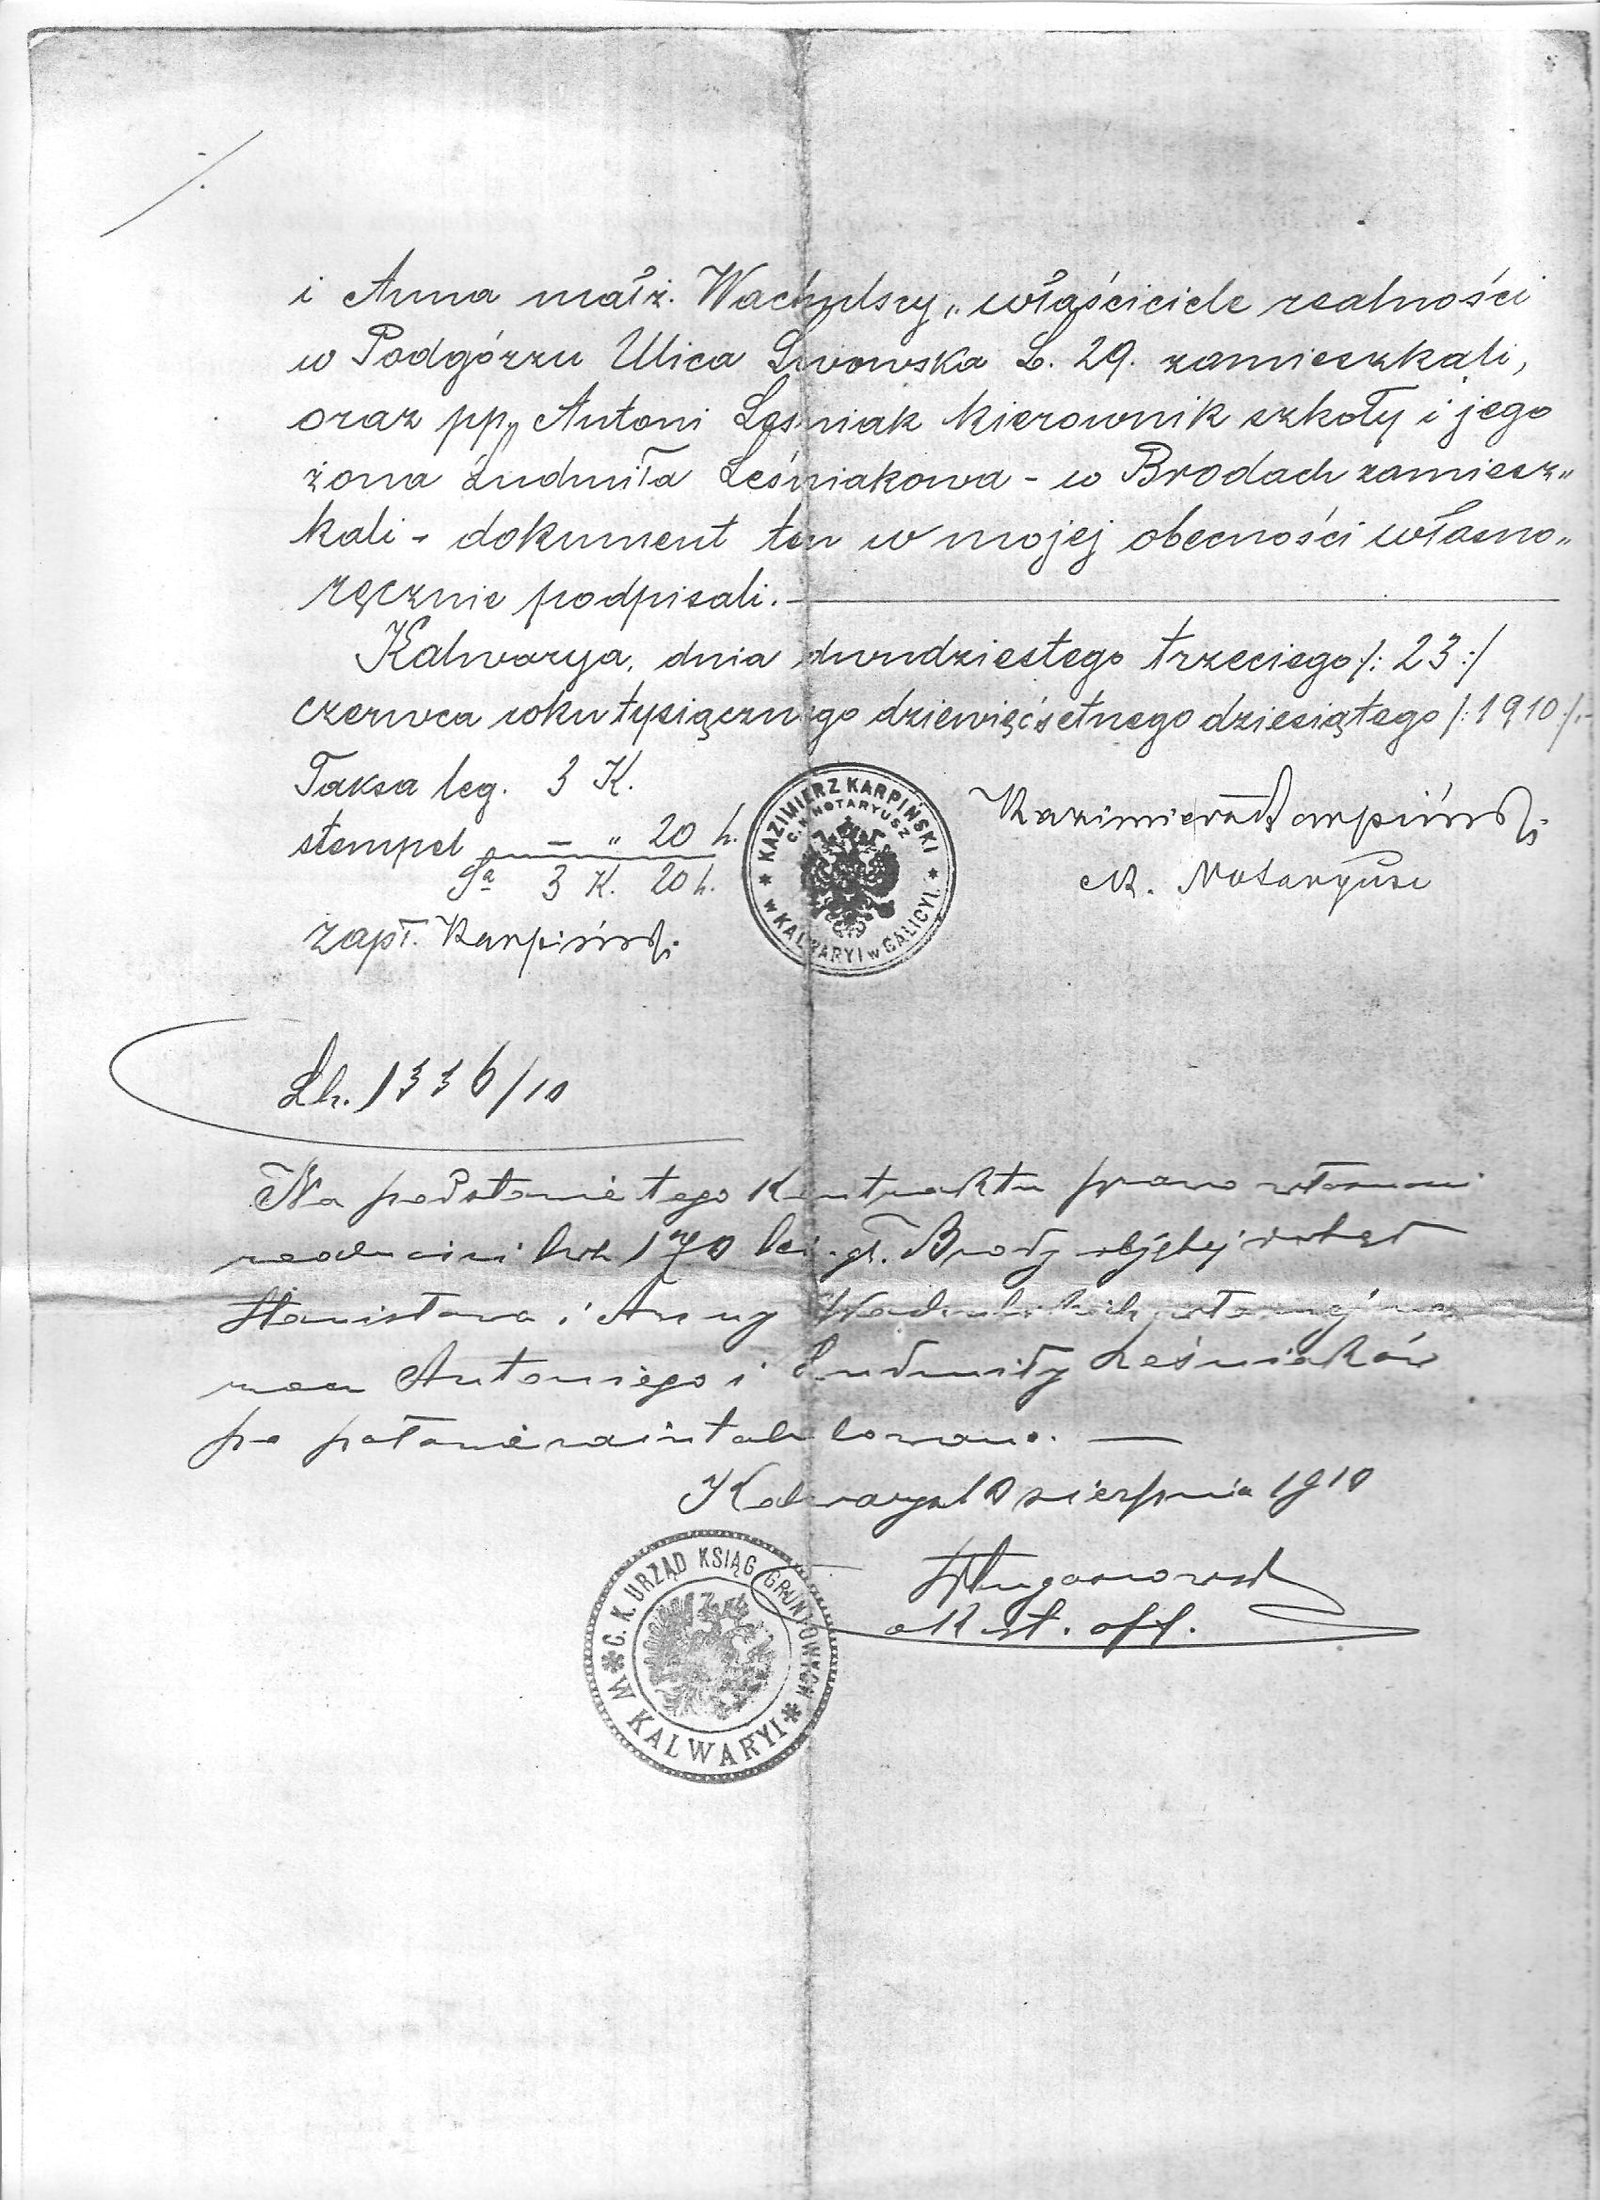 i Anna małż. Wachulscy„ właściciele realności
w Podgórzu Ulica Lwowska L. 29. zamieszkali,
oraz pp„ Antoni Leśniak kierownik szkoły i jego
żona Ludmiła Leśniakowa - w Brodach zamiesz„
kali - dokument ten w mojej obecności własno„
ręcznie podpisali.
Kalwarya, dnia dwudziestego trzeciego /: 23 :/
czerwca roku tysiącznego dziewięćsetnego dziesiątego /: 1910 :/.-
Taksa leg. 3 K.
stempel — „ 20 h.
Sa 3 K. 20 h.
zapł. Karpiński
KAZIMIERZ KARPIŃSKI
C. K. NOTARYUSZ
* w KALWARYI w GALICYI. *
Kazimierz Karpiński
ck. Notaryusz
Lh. 1336/10
Na podstawie tego Kontraktu prawo własności
realności lwh 170 ks. gr. Brody objętej dotąd
Stanisława i Anny Wachulskich własnej na
rzecz Antoniego i Ludmiły Leśniaków
po połowie zaintabulowano. —
Kalwarya 10 sierpnia 1910
ck st. off.
C. K. URZĄD KSIĄG GRUNTOWYCH
* W KALWARYI *